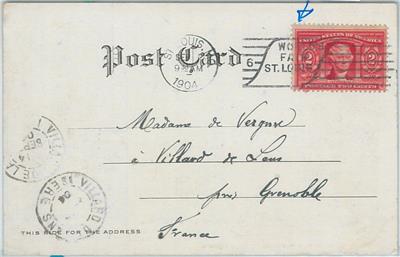 Post Card
ST. LOUIS
1904
6
WORLD'S
FAIR
ST. LOUIS
UNITED STATES OF AMERICA
2 2
POSTAGE TWO CENTS
Madame de
à Villard de Lans
près Grenoble
France
VILLARD
THIS SIDE FOR THE ADDRESS